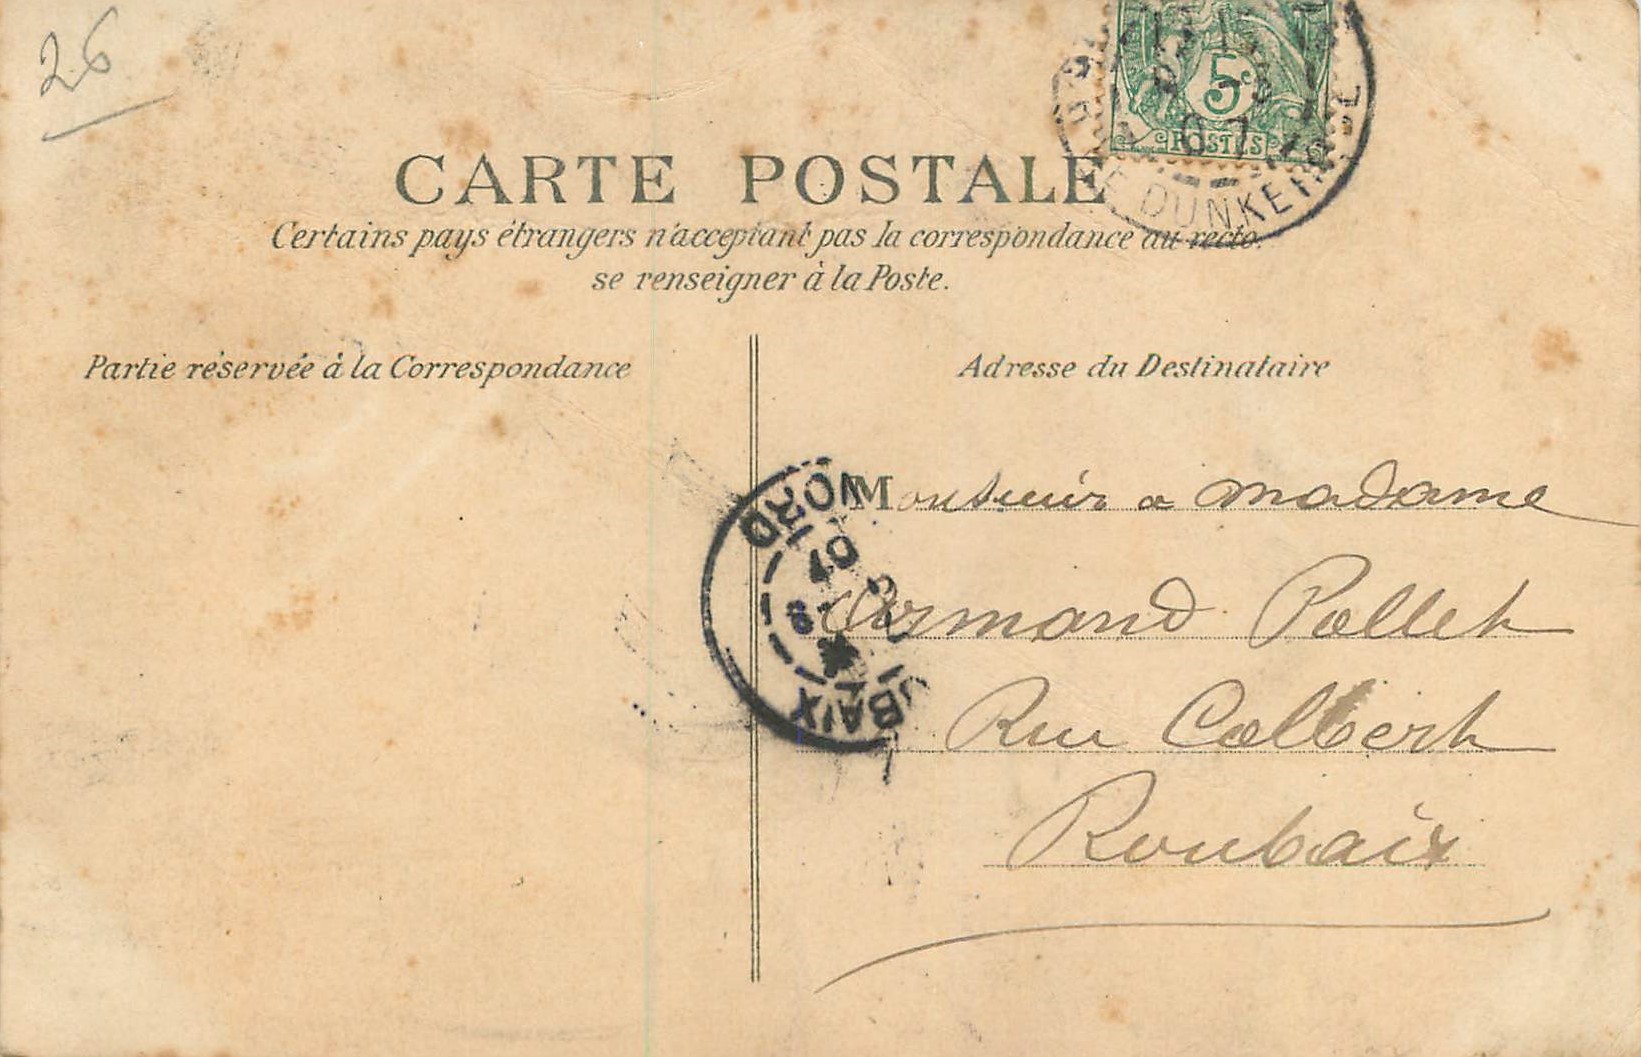 26
5c
POSTES
07
DUNKER
CARTE POSTALE
Certains pays étrangers n'acceptant pas la correspondance au recto.
se renseigner à la Poste.
Partie réservée à la Correspondance
Adresse du Destinataire
Monsieur a madame
Armand Pollet
Rue Colbert
Roubaix
NORD
07
UBAIX